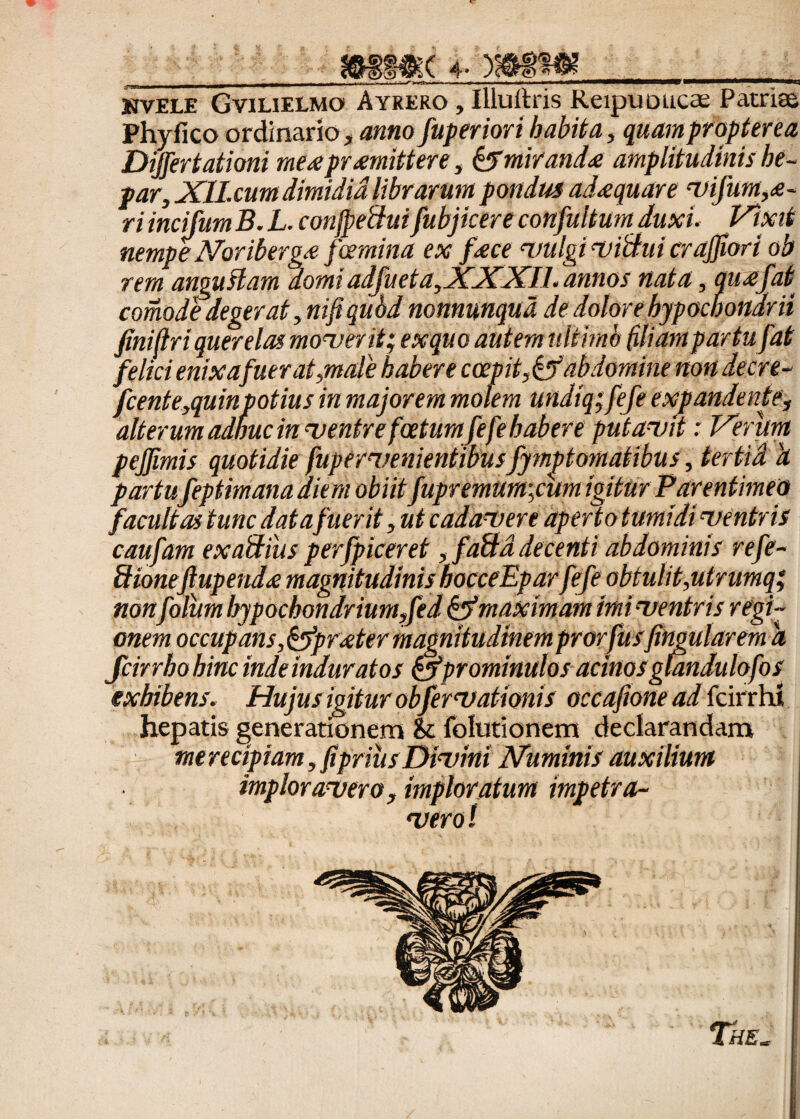 ( 4. )
NVELE GVILIELMO AYRERO, Illuſtris Reipublicæ Patriæ
Phyſico ordinario, anno ſuperiori habita, quam propterea
Diſſertationi meæ præmittere, & mirandæ amplitudinis he-
par, XII. cum dimidiâ librarum pondus adæquare viſum, æ-
ri inciſum B. L. conſpectui ſubjicere conſultum duxi. Vixit
nempe Noribergæ fœmina ex fæce vulgi victui craſſiori ob
rem anguſtam domi adſueta, XXXII. annos nata, quæ ſat
comodè degerat, niſi quòd nonnunquã de dolore hypochondrii
ſiniſtri querelas moverit; ex quo autem ultimò filiam partu ſat
felici enixa fuerat, malè habere cœpit, & abdomine non decre-
ſcente, quin potius in majorem molem undiq; ſeſe expandente,
alterum adhuc in ventre fœtum ſeſe habere putavit: Verùm
peſſimis quotidie ſupervenientibus ſymptomatibus, tertiâ à
partu ſeptimana diem obiit ſupremum; cùm igitur Parenti meo
facultas tunc data fuerit, ut cadavere aperto tumidi ventris
cauſam exactiùs perſpiceret, factâ decenti abdominis reſe-
ctione ſtupendæ magnitudinis hocce Epar ſeſe obtulit, utrumq;
non ſolùm hypochondrium, ſed & maximam imi ventris regi-
onem occupans, & præter magnitudinem prorſus ſingularem à
ſcirrho hinc inde induratos & prominulos acinos glanduloſos
exhibens. Hujus igitur obſervationis occaſione ad ſcirrhi
hepatis generationem & ſolutionem declarandam
me recipiam, ſi priùs Divini Numinis auxilium
imploravero, imploratum impetra-
vero!
THE-